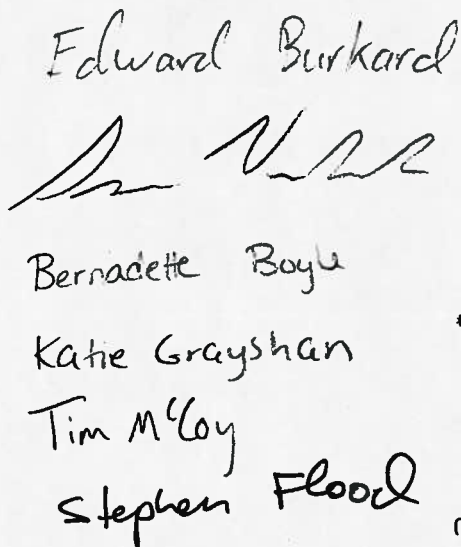 Edward Burkard
Bernadette Boyle
Katie Grayshan
Tim McCoy
Stephen Flood